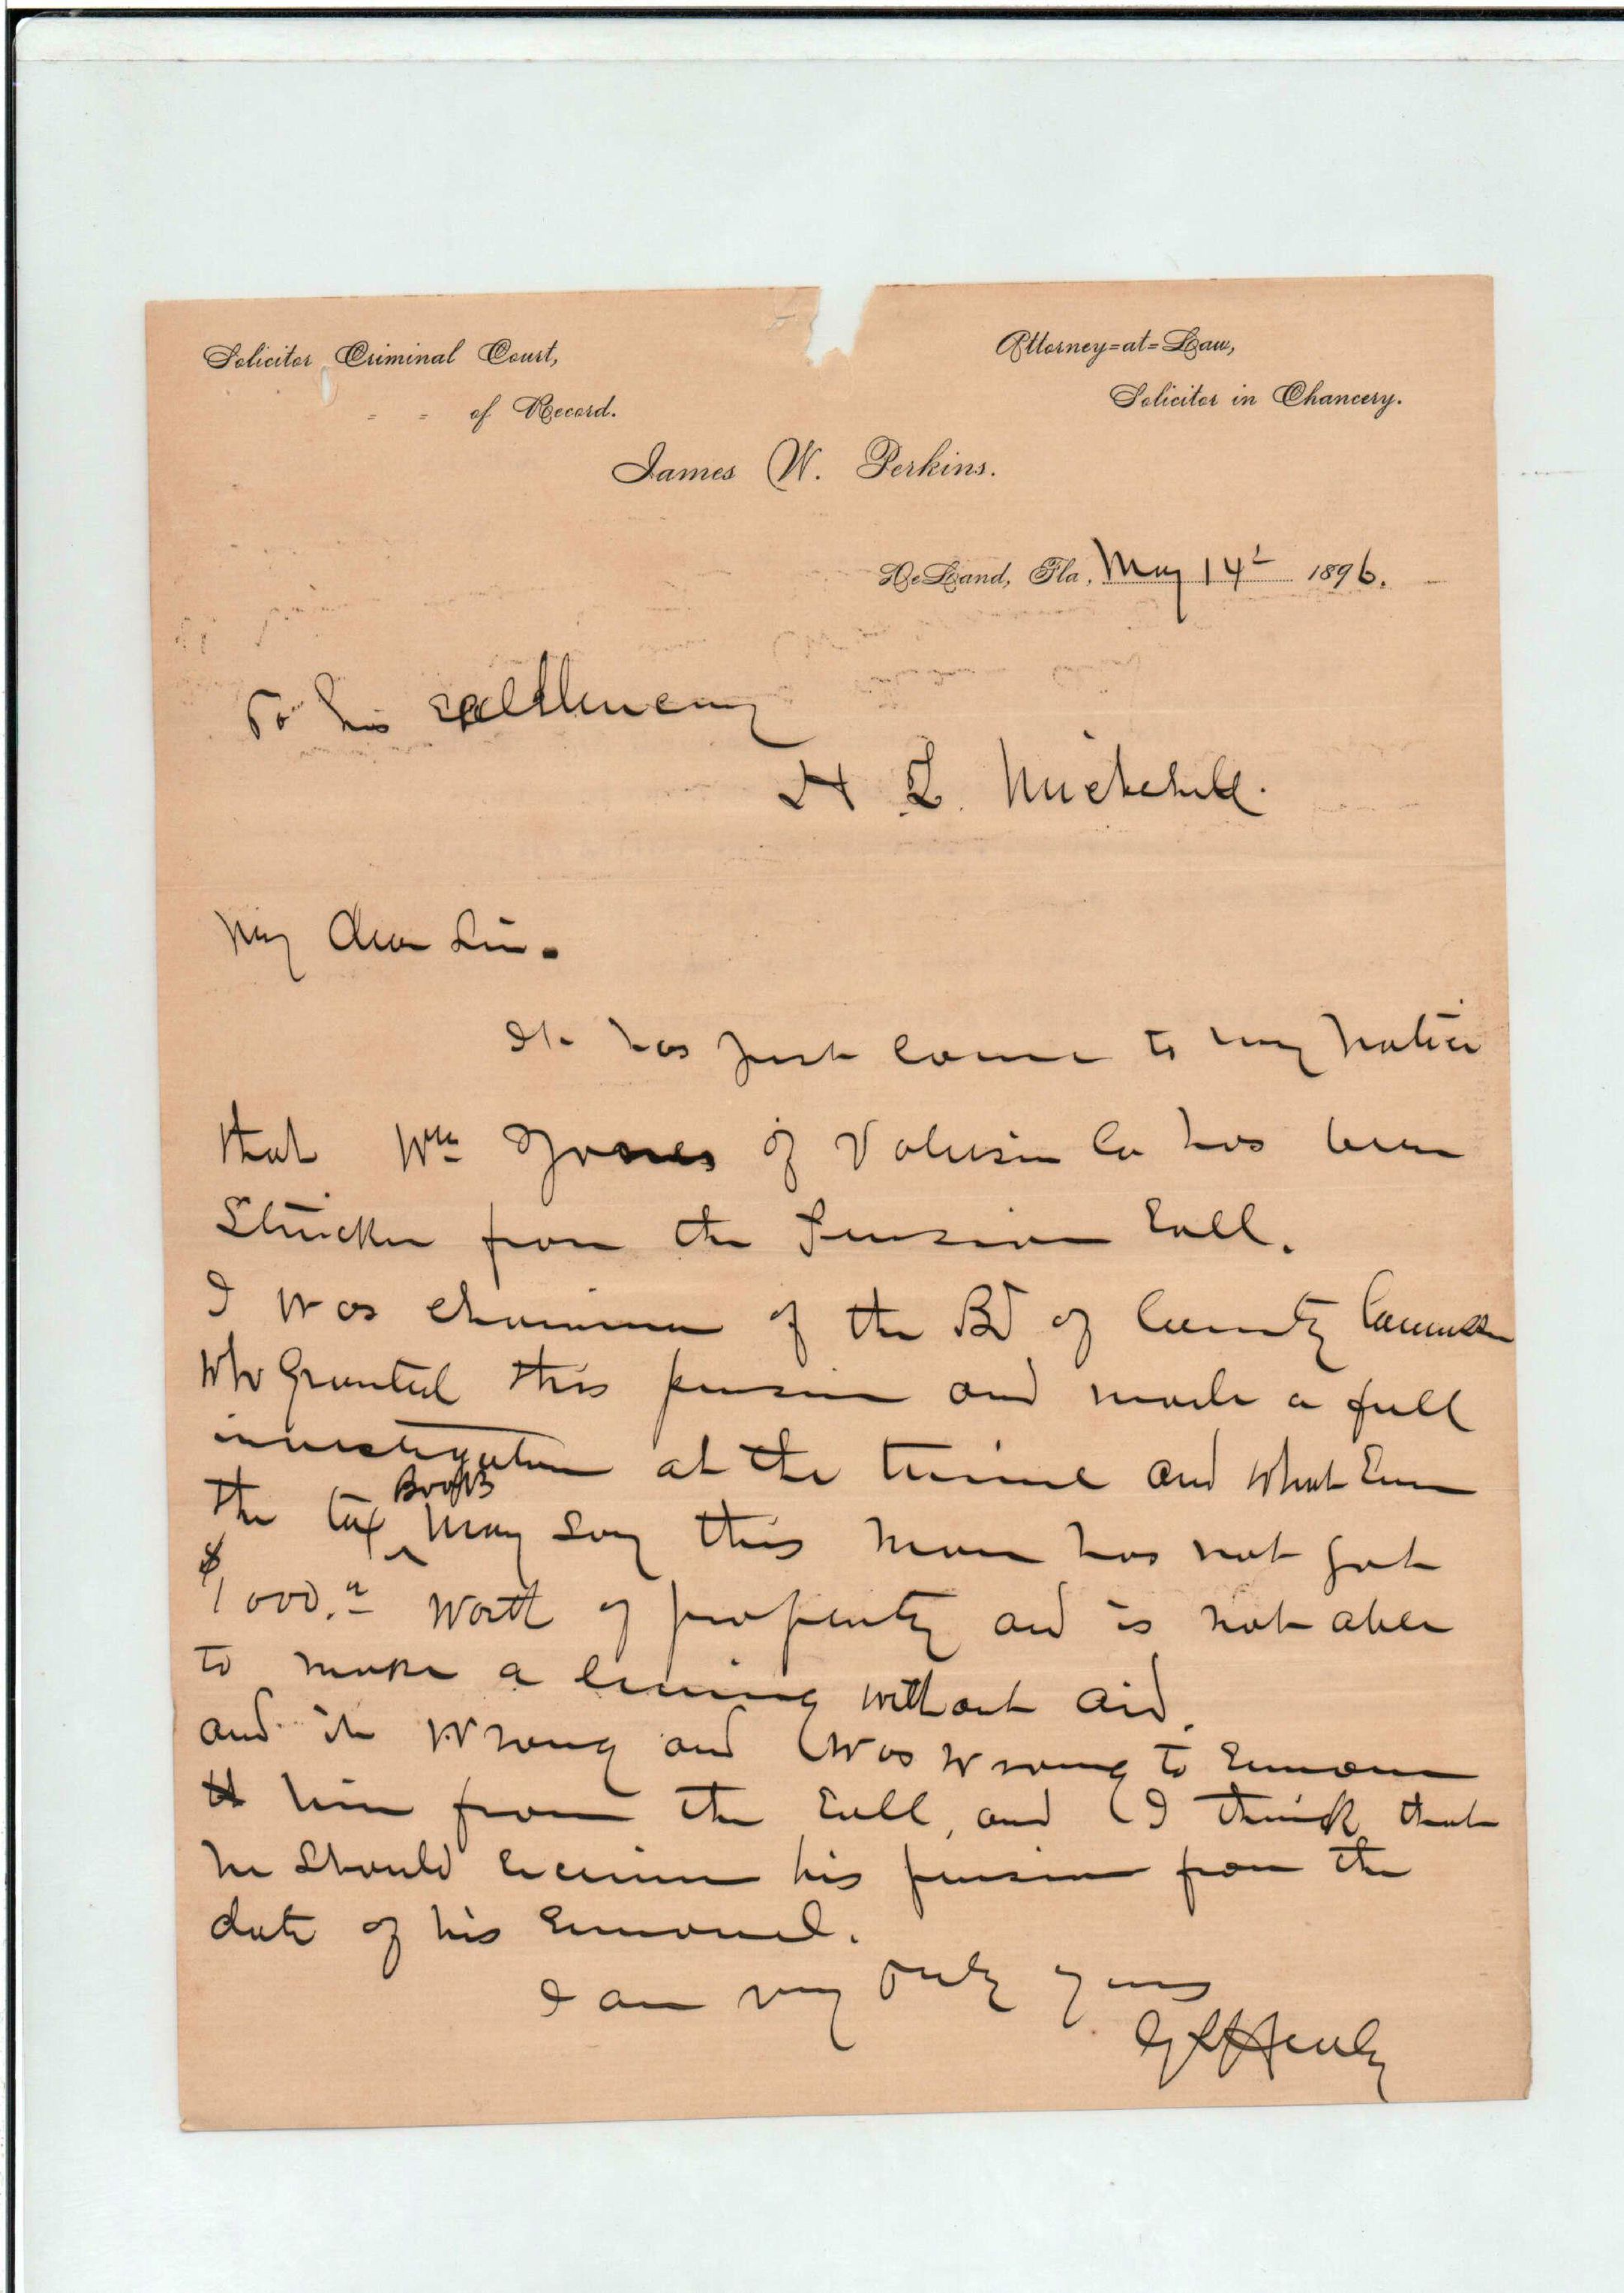 Solicitor Criminal Court,
" " of Record.
Attorney=at=Law,
Solicitor in Chancery.
James W. Perkins.
DeLand, Fla, May 14th 1896.
To his Excellency
H L. Mitchell.
My dear Sir.
It has just come to my notice
that Wm Jones of Volusia Co has been
Stricken from the Pension Roll.
I was chairman of the Bd of County
who granted this pension and made a full
investigation at the time and what Ever
the tax Books may say this man has not got
$1000.00 worth of property and is not able
to make a living without aid.
and it wrong and was wrong to Remove
him from the Roll, and I think that
he should receive his pension from the
date of his Removal.
I am very truly yours